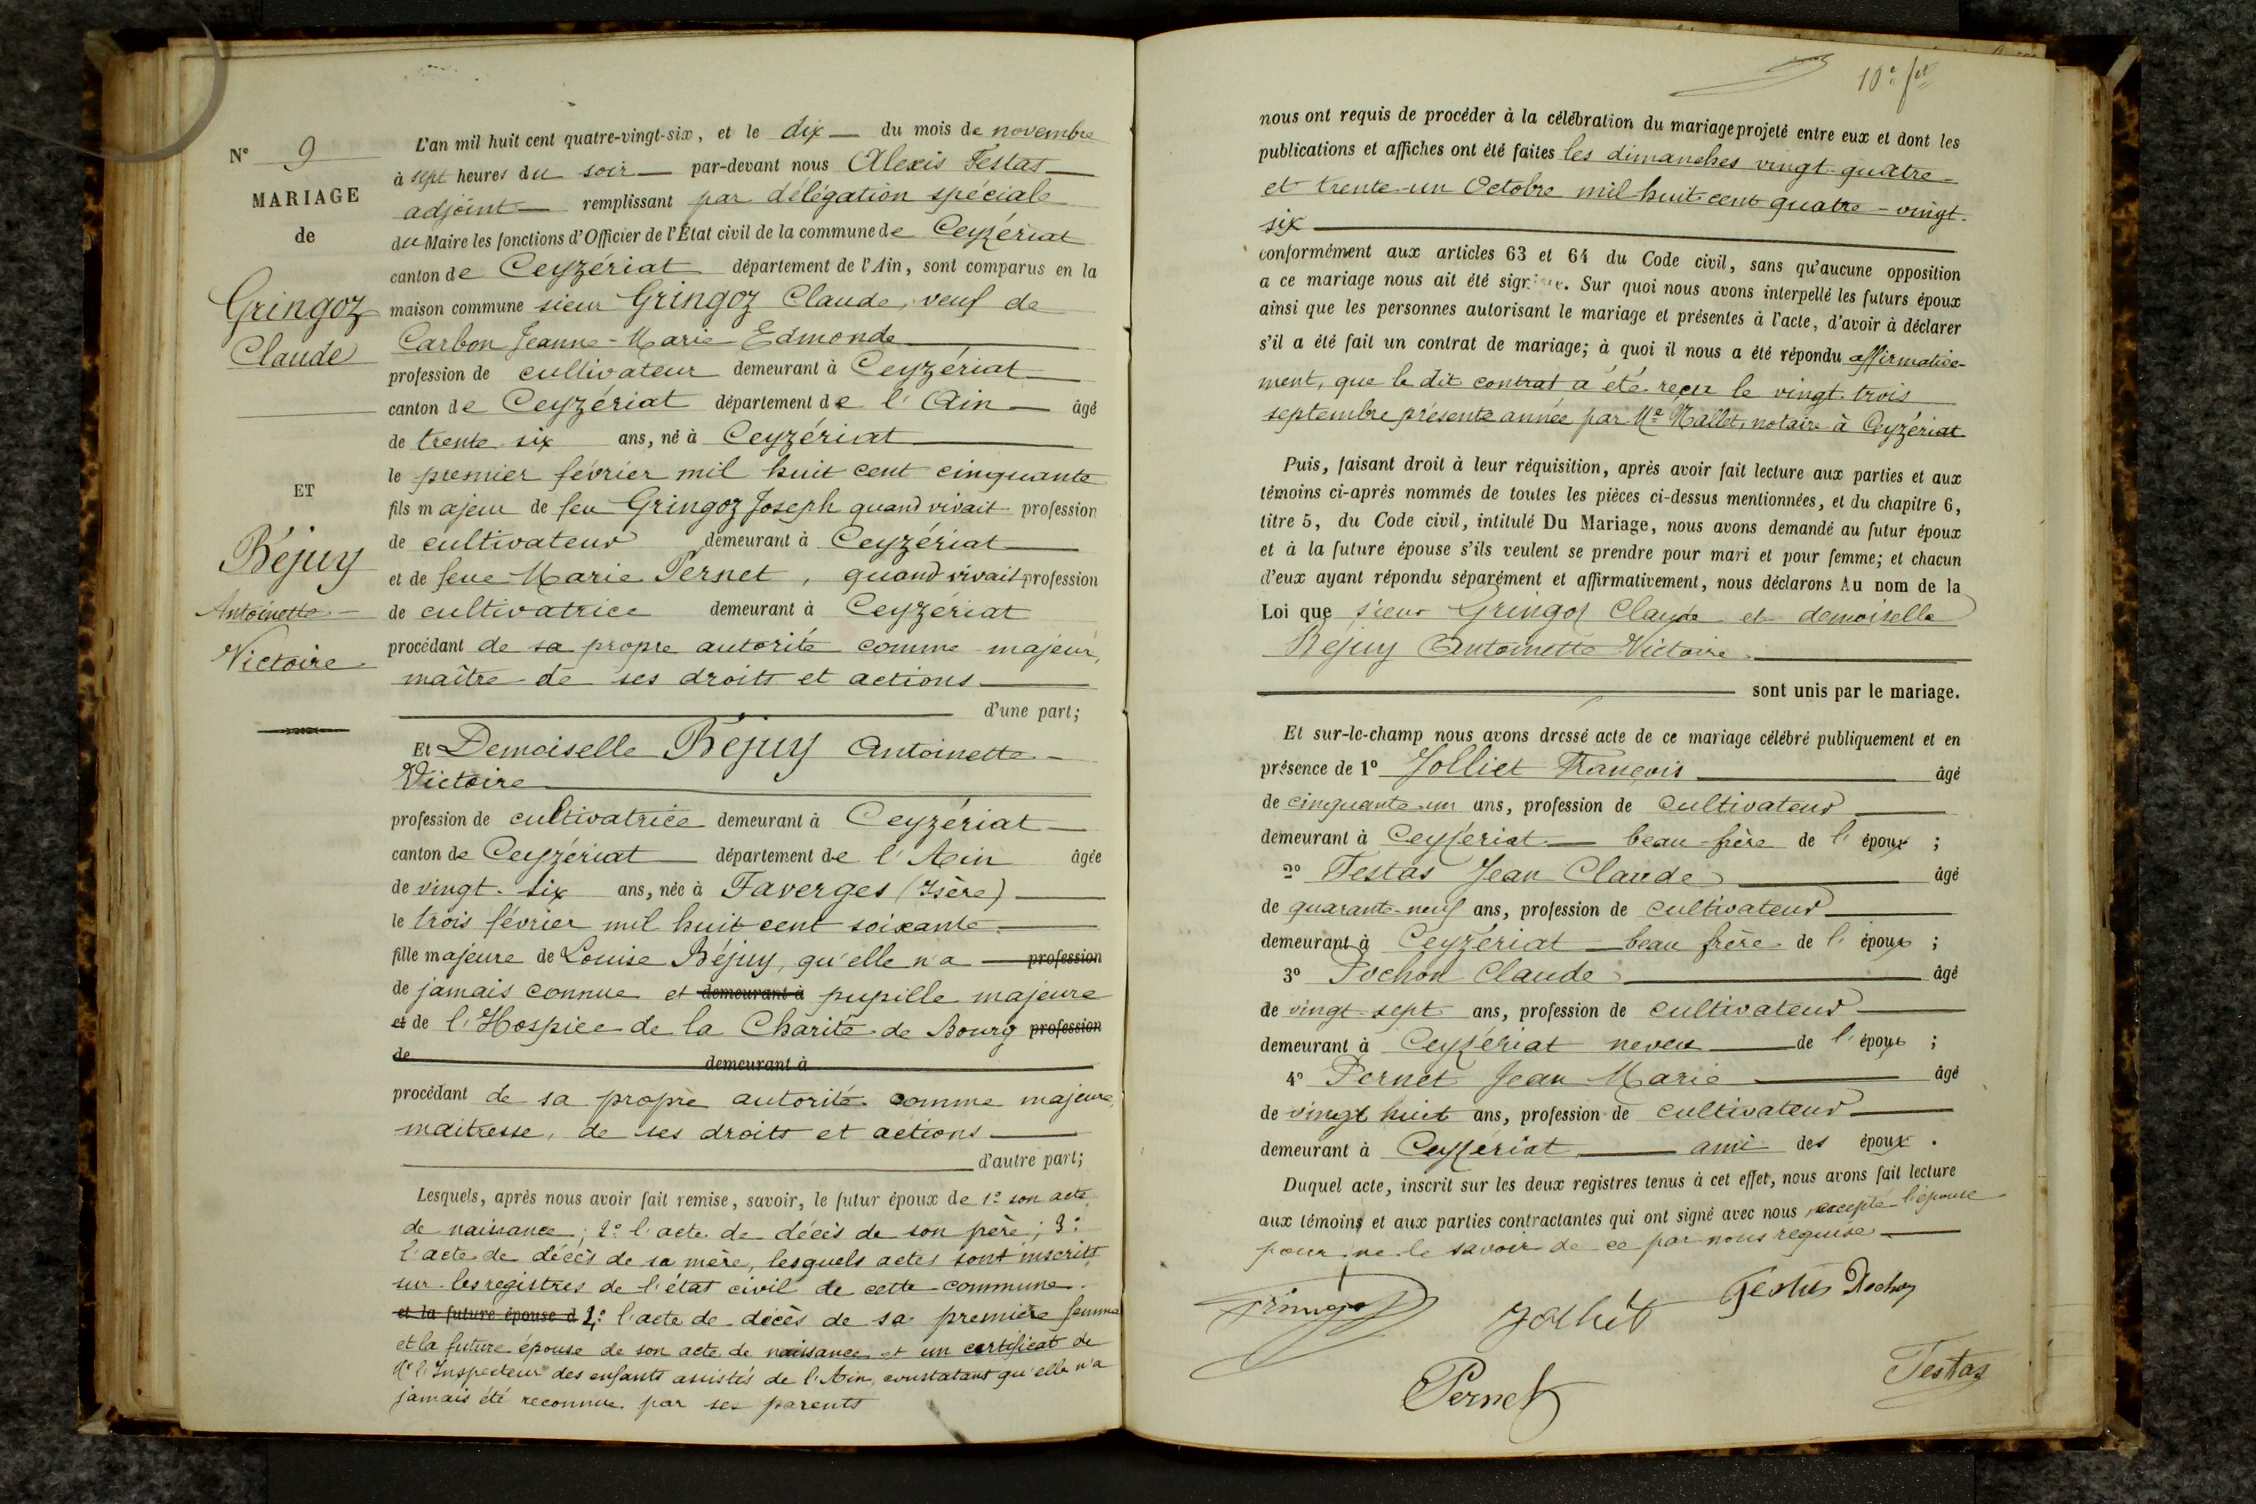 N° 9
MARIAGE
de
Gringoz
Claude
ET
Béjuy
Antoinette
Victoire
L'an mil huit cent quatre-vingt-six, et le dix du mois de novembre
à sept heures du soir par-devant nous Alexis Testas
adjoint remplissant par délégation spéciale
du Maire les fonctions d'Officier de l'État civil de la commune de Ceyzériat
canton de Ceyzériat département de l'Ain, sont comparus en la
maison commune sieur Gringoz Claude, veuf de
Carbon Jeanne-Marie Edmonde
profession de cultivateur demeurant à Ceyzériat
canton de Ceyzériat département de l'Ain âgé
de trente six ans, né à Ceyzériat
le premier février mil huit cent cinquante
fils majeur de feu Gringoz Joseph quand vivait profession
de cultivateur demeurant à Ceyzériat
et de feue Marie Pernet, quand vivait profession
de cultivatrice demeurant à Ceyzériat
procédant de sa propre autorité comme majeur,
maître de ses droits et actions
d'une part;
Et Demoiselle Béjuy Antoinette
Victoire
profession de cultivatrice demeurant à Ceyzériat
canton de Ceyzériat département de l'Ain âgée
de vingt-six ans, née à Faverges (Isère)
le trois février mil huit cent soixante
fille majeure de Louise Béjuy, qu'elle n'a profession
de jamais connue et demeurant à pupille majeure
et de l'Hospice de la Charité de Bourg profession
de demeurant à
procédant de sa propre autorité comme majeure,
maîtresse, de ses droits et actions
d'autre part;
Lesquels, après nous avoir fait remise, savoir, le futur époux de 1° son acte
de naissance; 2° l'acte de décès de son père; 3°
l'acte de décès de sa mère, lesquels actes sont inscrits
sur les registres de l'état civil de cette commune.
et la future épouse d 4° l'acte de décès de sa première femme
et la future épouse de son acte de naissance et un certificat de
Mr l'Inspecteur des enfants assistés de l'Ain, constatant qu'elle n'a
jamais été reconnue par ses parents
10e fet
nous ont requis de procéder à la célébration du mariage projeté entre eux et dont les
publications et affiches ont été faites les dimanches vingt-quatre
et trente-un Octobre mil-huit-cent quatre-vingt-
six
conformément aux articles 63 et 64 du Code civil, sans qu'aucune opposition
a ce mariage nous ait été sigr. Sur quoi nous avons interpellé les futurs époux
ainsi que les personnes autorisant le mariage et présentes à l'acte, d'avoir à déclarer
s'il a été fait un contrat de mariage; à quoi il nous a été répondu affirmative-
ment, que le dit contrat a été reçu le vingt-trois
septembre présente année par Me Mallet, notaire à Ceyzériat
Puis, faisant droit à leur réquisition, après avoir fait lecture aux parties et aux
témoins ci-après nommés de toutes les pièces ci-dessus mentionnées, et du chapitre 6,
titre 5, du Code civil, intitulé Du Mariage, nous avons demandé au futur époux
et à la future épouse s'ils veulent se prendre pour mari et pour femme; et chacun
d'eux ayant répondu séparément et affirmativement, nous déclarons Au nom de la
Loi que sieur Gringoz Claude et demoiselle
Béjuy Antoinette Victoire
sont unis par le mariage.
Et sur-le-champ nous avons dressé acte de ce mariage célébré publiquement et en
présence de 1° Jolliet François âgé
de cinquante-un ans, profession de cultivateur
demeurant à Ceyzériat beau-frère de l'époux ;
2° Testas Jean Claude âgé
de quarante-neuf ans, profession de cultivateur
demeurant à Ceyzériat beau frère de l'époux ;
3° Pochon Claude âgé
de vingt-sept ans, profession de cultivateur
demeurant à Ceyzériat neveu de l'époux ;
4° Pernet Jean Marie âgé
de vingt huit ans, profession de cultivateur
demeurant à Ceyzériat ami des époux .
Duquel acte, inscrit sur les deux registres tenus à cet effet, nous avons fait lecture
aux témoins et aux parties contractantes qui ont signé avec nous, excepté l'épouse
pour ne le savoir de ce par nous requise
Gringoz Jolliet Testas Pochon
Pernet Testas